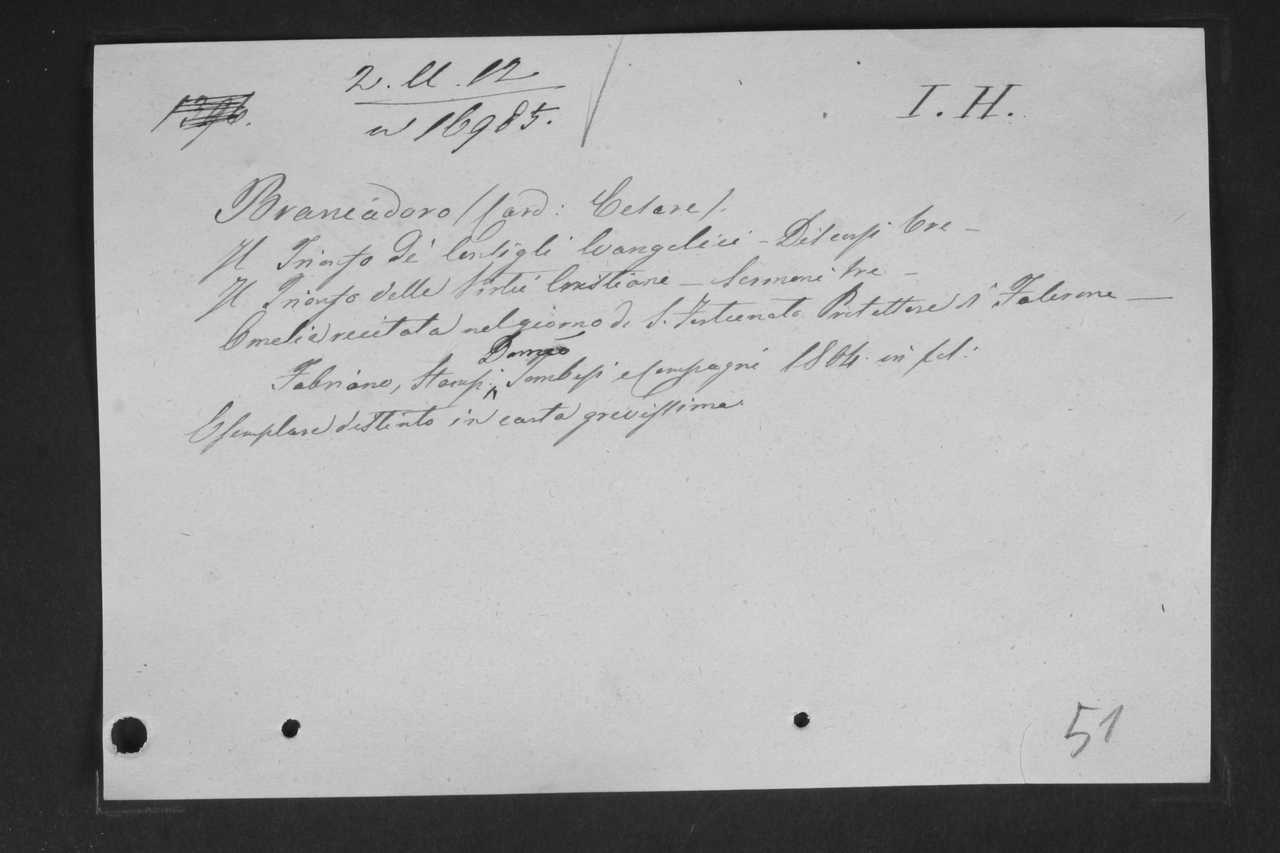 2. U. 12
I. H.
16985.
Brancàdoro (Card: Cesare).
Il Trionfo de' Consigli Evangelici – Discorsi tre –
Il Trionfo delle Virtù Cristiane – Sermoni tre –
Omelia recitata nel giorno di S. Fortunato Protettore di Falerone –
Domco
Fabriano, Stamp: Tombesi e Compagni 1804. in fol:
Esemplare distinto in carta grevissima
51